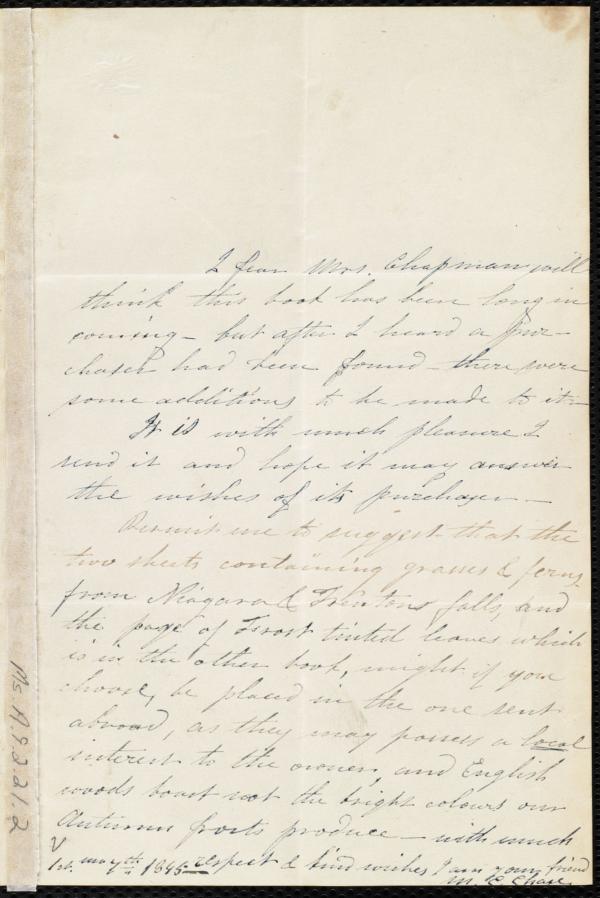 I fear Mrs. Chapman will
think this book has been long in
coming - but after I heard a pur-
chaser had been found - there were
some additions to be made to it -
It is with much pleasure I
send it and hope it may answer
the wishes of its purchaser -
Permit me to suggest that the
two sheets containing grasses & ferns
from Niagara & Trentons falls, and
the page of Frost tinted leaves which
is in the other book, might if you
choose, be placed in the one sent
abroad, as they may possess a local
interest to the owner, and English
woods boast not the bright colours our
Autumn frosts produce - with much
may 7th 1845 - respect & kind wishes I am your friend
M. E. Chase
Ms.A.9.2.21.2